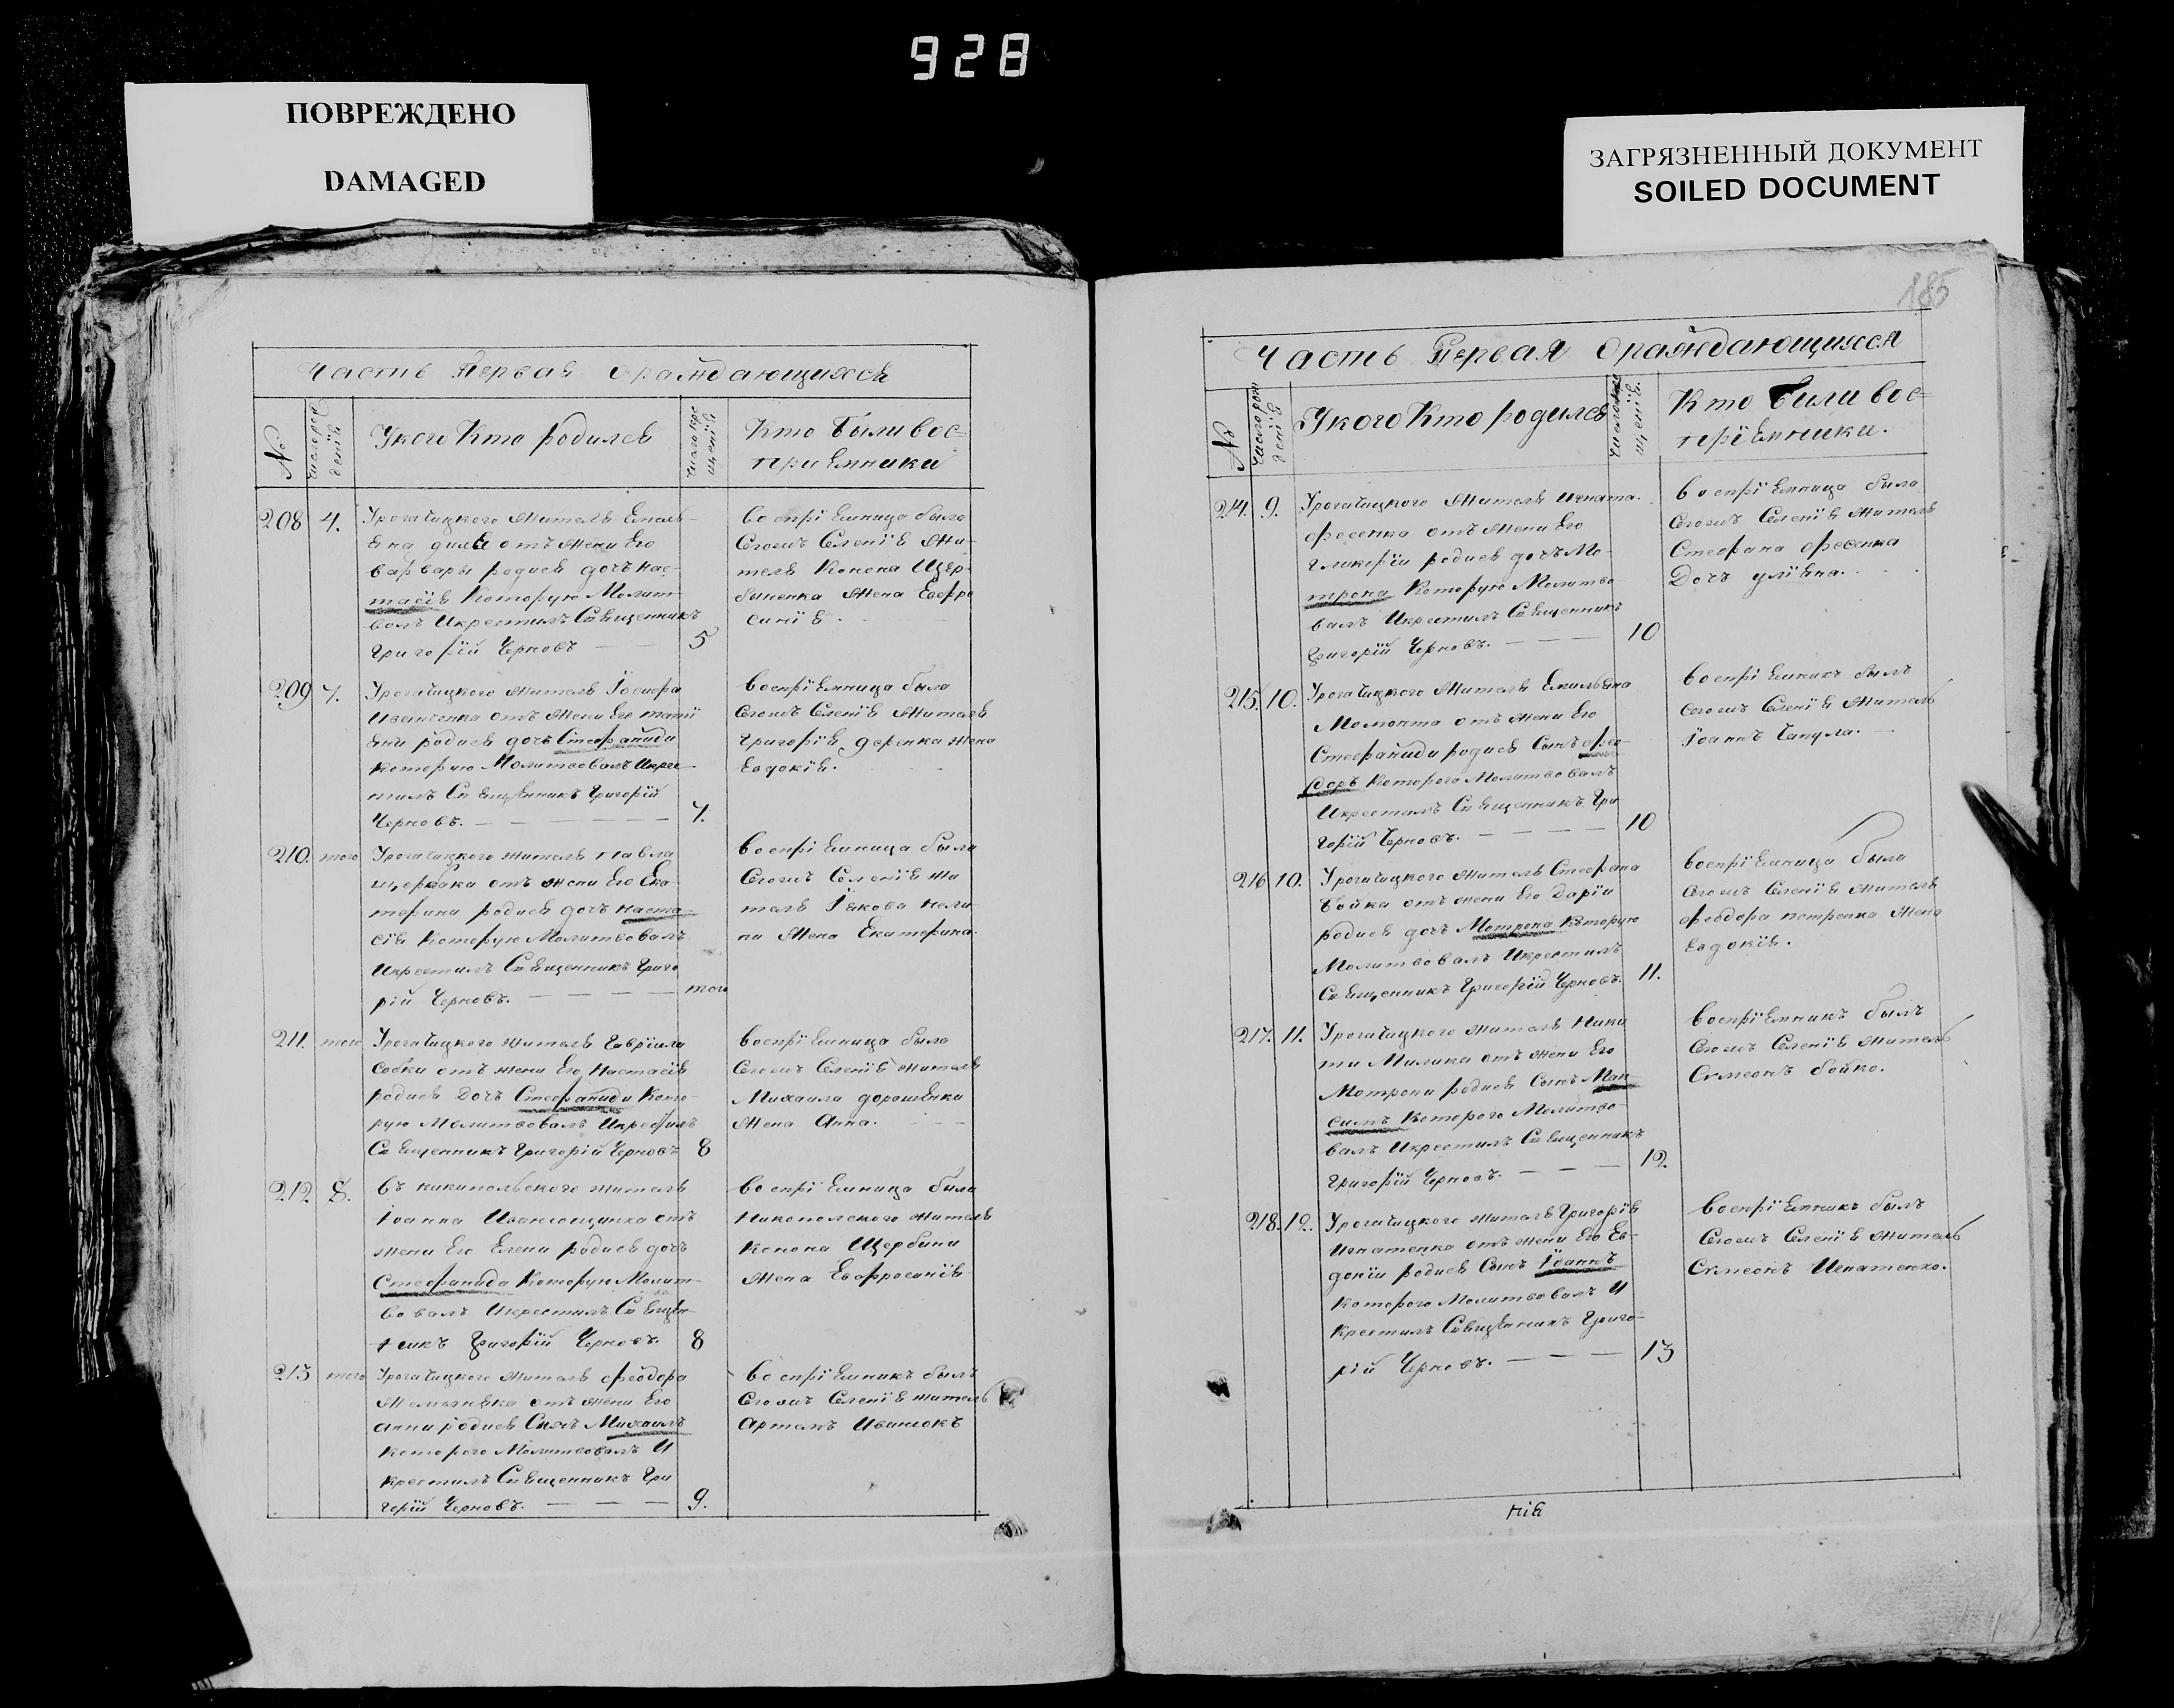 928
ПОВРЕЖДЕНО
DAMAGED
ЗАГРЯЗНЕННЫЙ ДОКУМЕНТ
SOILED DOCUMENT
Часть Первая Ораждающихся
№
Укого Кто родился
Кто были вос=
приемники
208 4. Урогачицкого жителя Емель-
яна отъ жены Его
варвары родися дочь нас-
тасія Которую Молит-
валъ Икрестилъ Священникъ
Григорій Черновъ 5
воспріемница была
Сегожъ Селенія жи-
теля Конона Щер-
быненка жена Евфро
синія.
209 7. Урогачицкого жителя Іосифа
Иванченка отъ жены Его тати
яни родися дочь Стефанида
которую Молитвовалъ Икрес-
тилъ Священникъ Григорій
Черновъ. 7.
воспріемница была
Сегожъ Селенія жителя
Григорія деренка жена
Евдокія.
210. того Урогачицкого жителя Павла
щербака отъ жены Его Ека
терины родися дочь наста-
сія Которую Молитвовалъ
Икрестилъ Священникъ Григо
рій Черновъ. того
воспріемница была
Сегожъ Селенія жи
теля Іякова
на жена Екатерина.
211. того Урогачицкого жителя Гавріила
Собки отъ жены Его Настасія
родися Дочь Стефанида Кото-
рую Молитвовалъ Икрестилъ
Священникъ Григорій Черновъ 8
воспріемница была
Сегожъ Селенія жителя
Михаила дорошенка
жена Анна.
212 8. въ никипольского жителя
Іоанна отъ
жены Его Елены родися дочь
Стефанида Которую Молит-
вовалъ Икрестилъ Священ-
никъ Григорій Черновъ. 8
воспріемница была
Никополского жителя
Конона Щербины
жена Евфросинія
213 того Урогачицкого жителя феодора
отъ жены Его
анни родися Сынъ Михаилъ
Которого Молитвовалъ И
крестилъ Священникъ Гри
горій Черновъ. 9.
воспріемникъ былъ
Сегожъ Селенія житель
Артемъ Иванюкъ
185
Часть Первая Ораждающихся
№
Укого Кто родился
Кто были вос=
пріемники.
214. 9. Урогачицкого жителя Игната.
фесенка отъ жены Его
гликеріи родися дочь Мо-
трона Которую Молитво
валъ Икрестилъ Священникъ
Григорій Черновъ. 10
воспріемница была
Сегожъ Селенія жителя
Стефана фесенка
Дочь уліяна.
215. 10. Урогачицкого жителя Емильяна
Момонта отъ жены Его
Стефаниди родися Сынъ фео-
доръ Которого Молитвовалъ
Икрестилъ Священникъ Гри
горій Черновъ. 10
воспріемникъ былъ
сегожъ Селенія житель
Іоаннъ Чапула.
216 10. Урогачицкого жителя Стефана
бойка отъ жены Его Даріи
родися дочь Мотрона Которую
Молитвовалъ Икрестилъ
Священникъ Григорій Черновъ. 11.
воспріемница была
сегожъ Селенія жителя
феодора петренка жена
Евдокія.
217. 11. Урогачицкого жителя Ники
ти Милика отъ жены Его
Мотрони родися Сынъ Мак-
симъ Которого Молитво-
валъ Икрестилъ Священникъ
Григорій Черновъ. 12.
воспріемникъ былъ
Сегожъ Селенія житель
Симеонъ бойко.
218. 12. Урогачицкого жителя Григорія
Игнатенка отъ жены Его Ев-
докіи родися Сынъ Іоаннъ
Которого Молитвовалъ И
крестилъ Священникъ Григо-
рій Черновъ. 13
воспріемникъ былъ
Сегожъ Селенія житель
Симеонъ Игнатенко.